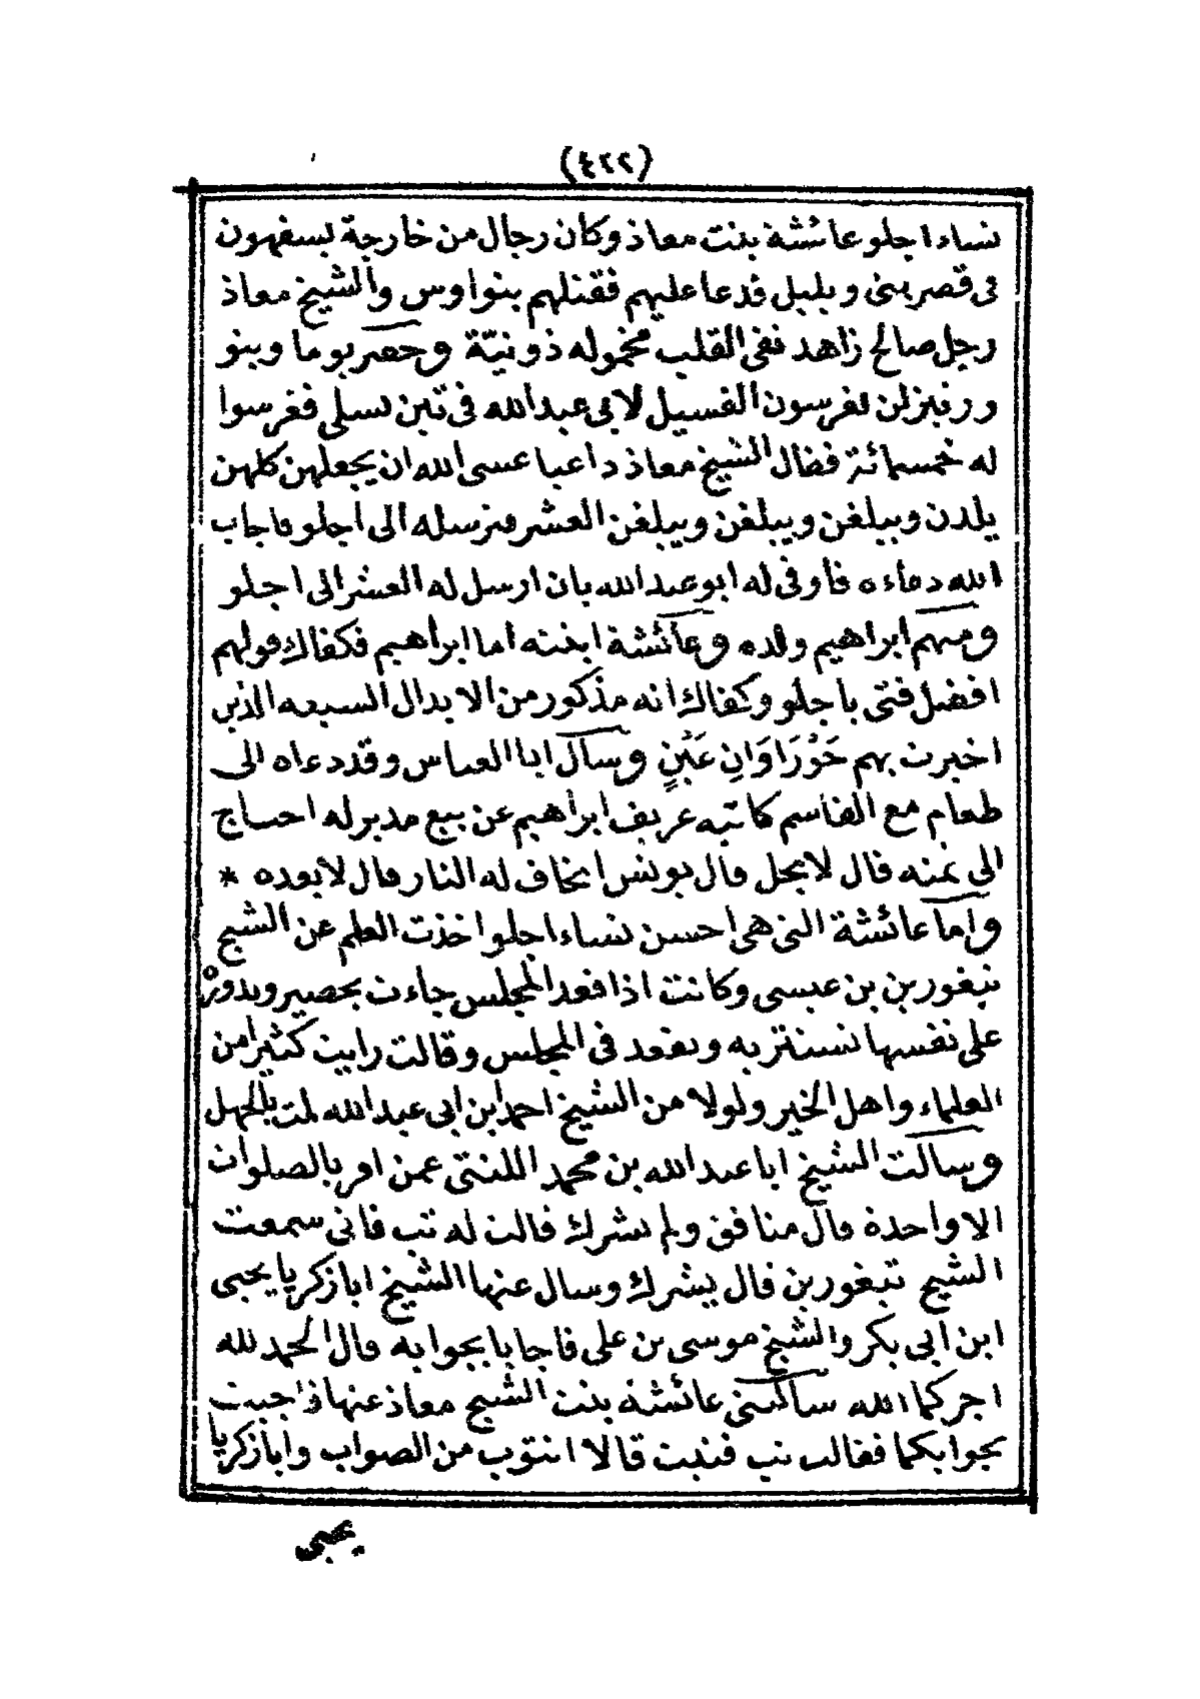 (٤٢٢)
نساء اجلو عائشة بنت معاذ وكان رجال من خارجة يسفهون
فى قصر بنى ويليل فدعا عليهم فقتلهم بنوا وس والشيخ معاذ
رجل صالح زاهد نقى القلب مخموله ذو نيّة وحضر يوما وبنو
ورنيزلن يغرسون الفسيل لابى عبد الله فى تين يسلى فغرسوا
له خمسمائة فقال الشيخ معاذ داعيا عسى الله ان يجعلهن كلهن
يلدن ويبلغن ويبلغن ويبلغن العشر فنرسله الى اجلو فاجاب
الله دعاءه فأوفى له ابو عبد الله بان ارسل له العشر الى اجلو
ومنهم ابراهيم ولده وعائشة ابنته اما ابراهيم فكفاك قولهم
افضل فتى باجلو وكفاك انه مذكور من الابدال السبعه الذين
اخبرت بهم حَوْرَاوَانِ عَيْنٍ وسأل ابا العباس وقد دعاه الى
طعام مع القاسم كاتبه عريف ابراهيم عن بيع مدبر له احتاج
الى ثمنه قال لا يحل قال يونس ايخاف له النار قال لا يوده *
واما عائشة التى هى احسن نساء اجلو اخذت العلم عن الشيخ
تبغورين بن عيسى وكانت اذا قعد المجلس جاءت بحصير وتدورْه
على نفسها تستتر به وتقعد فى المجلس وقالت رايت كثيرا من
العلماء واهل الخير ولولا من الشيخ احمد ابن ابى عبد الله لمت بالجهل
وسالت الشيخ ابا عبد الله بن محمد اللنتى عمن اقر بالصلوات
الا واحدة قال منافق ولم يشرك قالت له تب فانى سمعت
الشيخ تبغورين قال يشرك وسال عنها الشيخ ابا زكريا يحيى
ابن ابى بكر والشيخ موسى بن على فاجابا بجوابه قال الحمد لله
اجركما الله سالتنى عائشة بنت الشيخ معاذ عنها فاجبت
بجوابكما فقالت تب فتبت قالا انتوب من الصواب وابا زكريا
يحيى